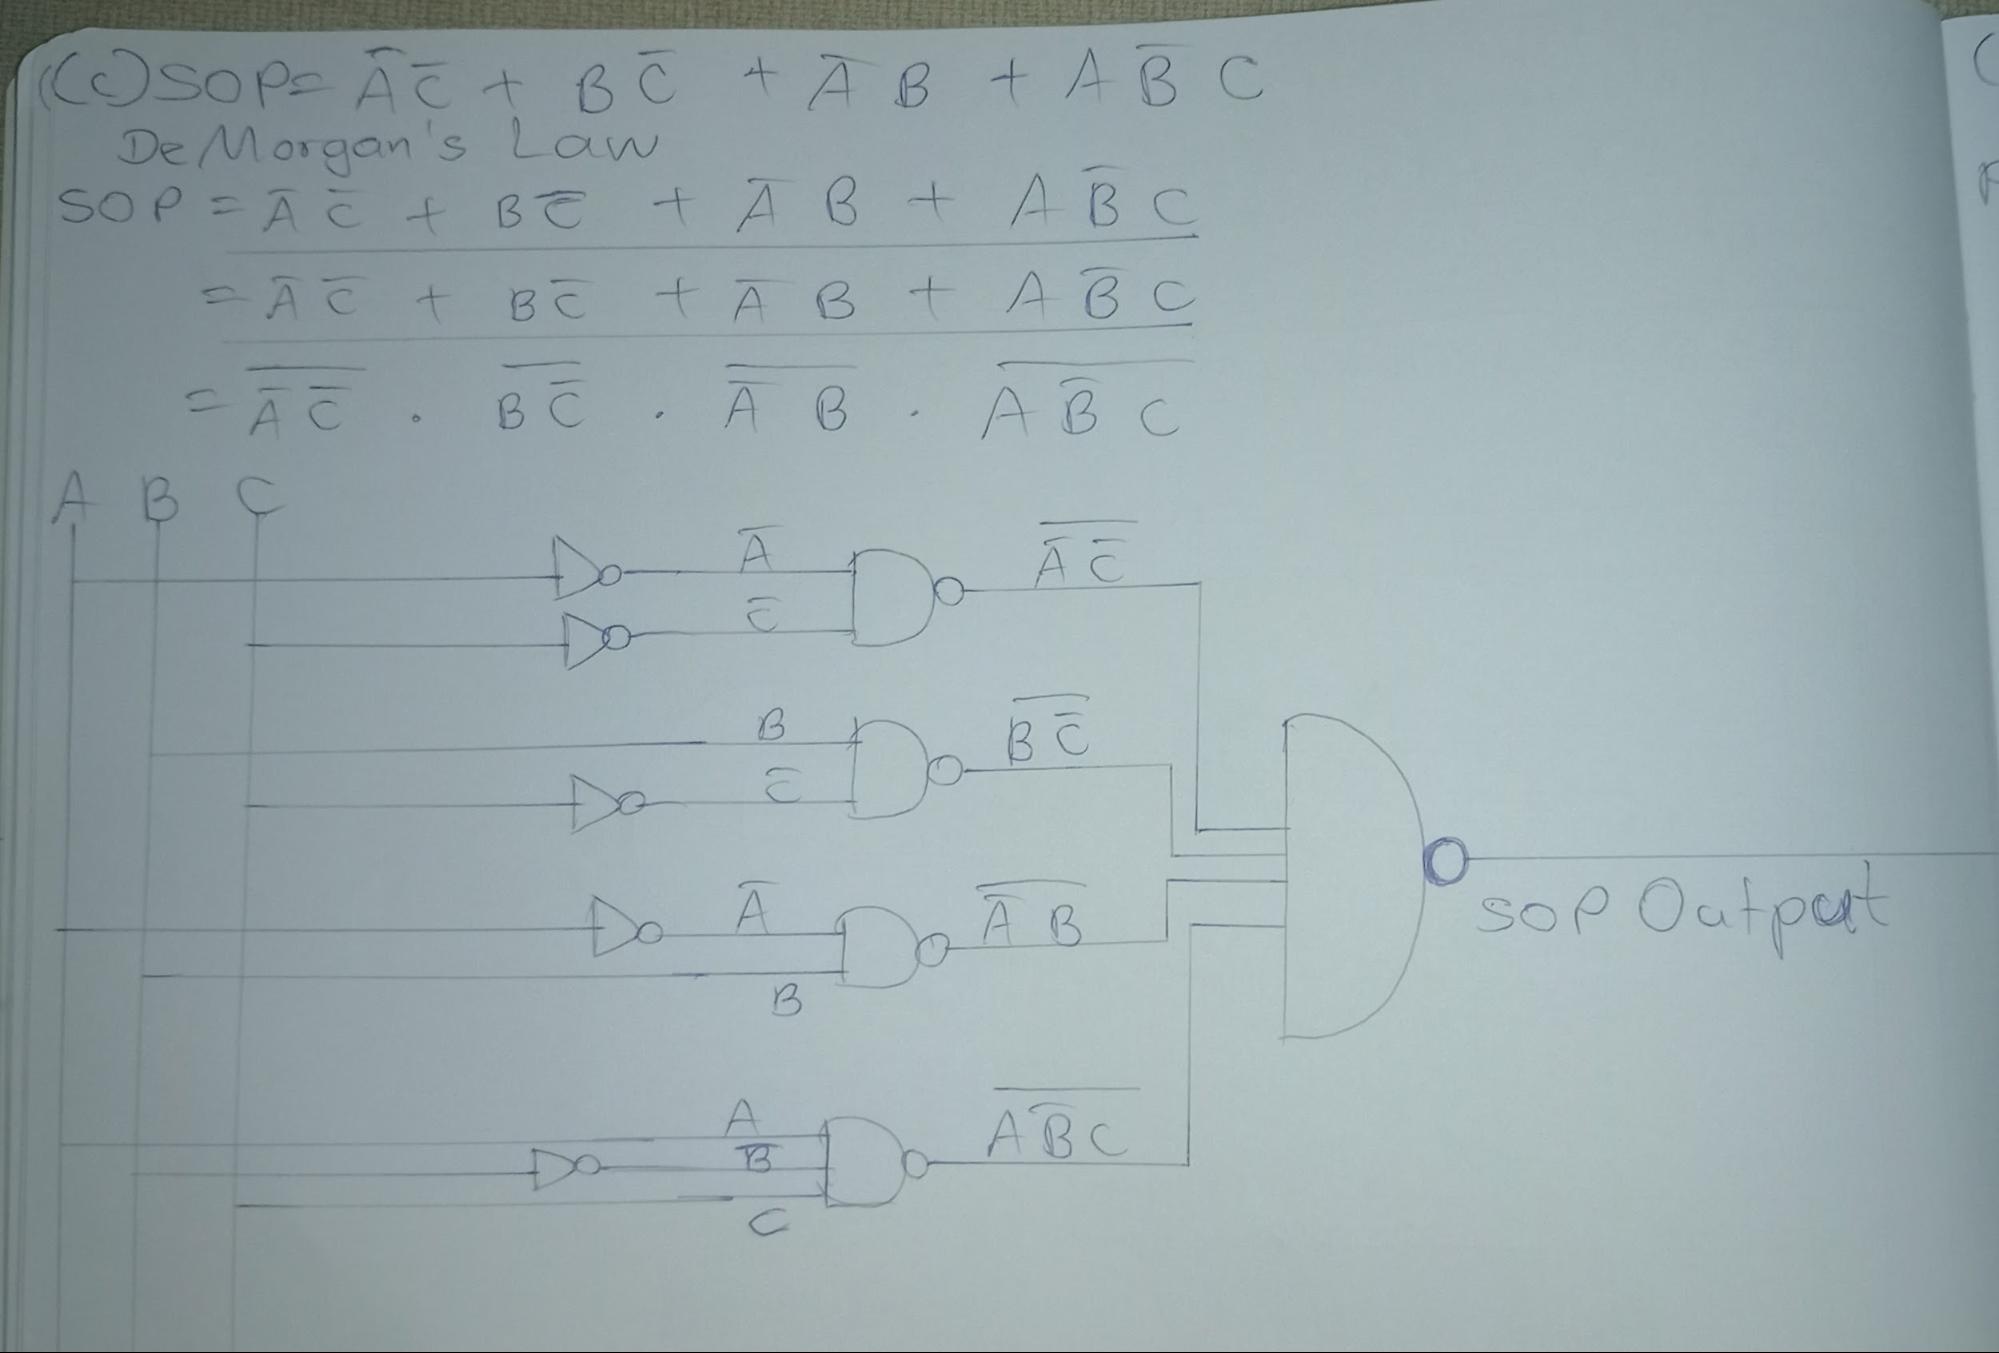 (c) SOP = A̅ C̅ + B C̅ + A̅ B + A B̅ C
DeMorgan's Law
SOP = A̅ C̅ + B C̅ + A̅ B + A B̅ C
= A̅ C̅ + B C̅ + A̅ B + A B̅ C
= \overline{A̅ C̅} . \overline{B C̅} . \overline{A̅ B} . \overline{A B̅ C}
A B C
A̅
C̅
\overline{A̅ C̅}
B
C̅
\overline{B C̅}
A̅
B
\overline{A̅ B}
SOP Output
A
B̅
C
\overline{A B̅ C}